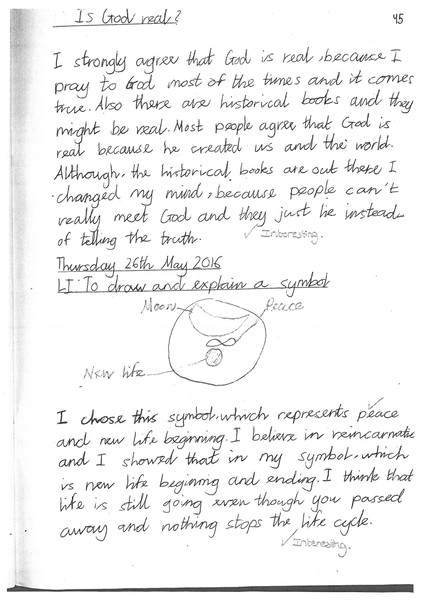 Is God real?
45
I strongly agree that God is real, because I
pray to God most of the times and it comes
true. Also there are historical books and they
might be real. Most people agree that God is
real because he created us and the world.
Although, the historical books are out there I
changed my mind, because people can't
really meet God and they just lie instead
of telling the truth.
✓ Interesting.
Thursday 26th May 2016
LI: To draw and explain a symbol
Moon
Peace
New life
I chose this symbol, which represents peace
and new life beginning. I believe in reincarnatic
and I showed that in my symbol, which
is new life beginning and ending. I think that
life is still going even though you passed
away and nothing stops the life cycle.
✓ Interesting.